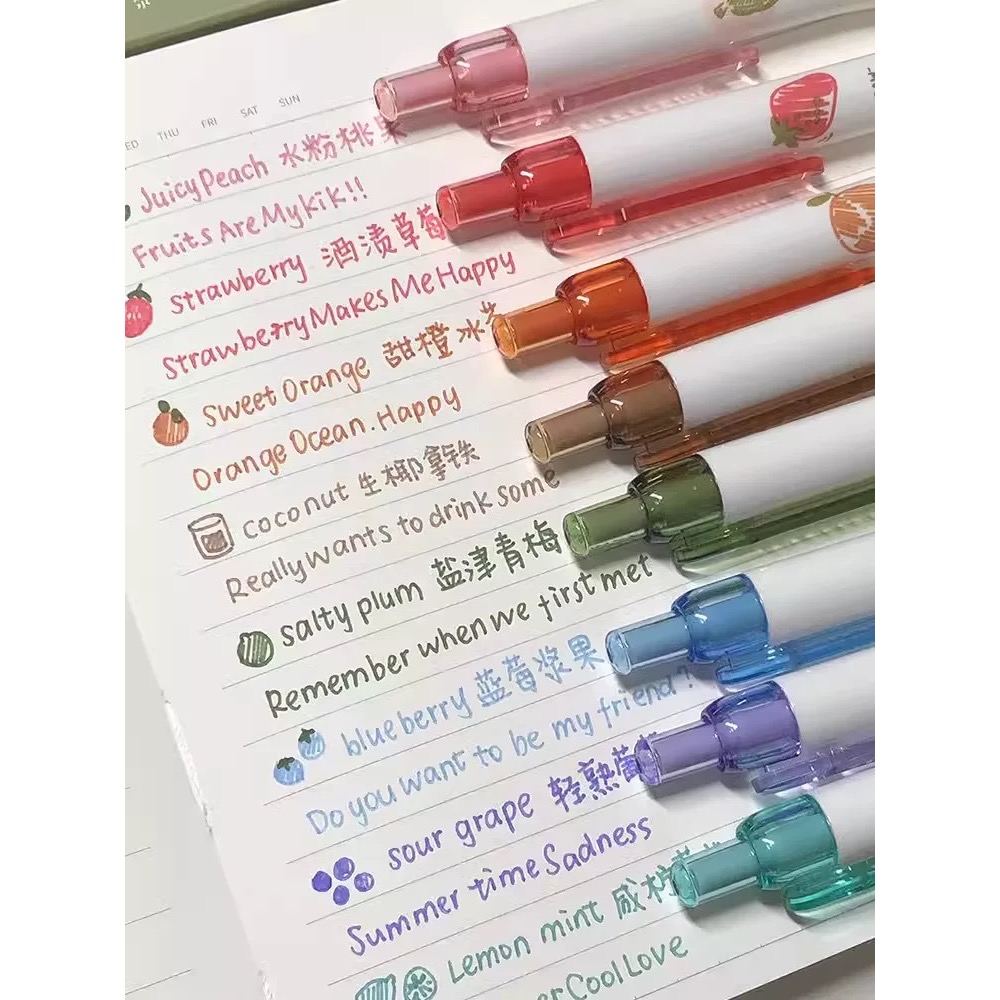 THU FRI SAT SUN
Juicy Peach 水粉桃果
Fruits Are My Kik!!
Strawberry 酒渍草莓
Strawberry Makes Me Happy
Sweet Orange 甜橙冰
Orange Ocean. Happy
coconut 生椰拿铁
Really wants to drink some
salty plum 盐津青梅
Remember when we first met
blueberry 蓝莓浆果
Do you want to be my friend?
sour grape 轻熟
Summer time Sadness
Lemon mint 咸柠
Cool Love